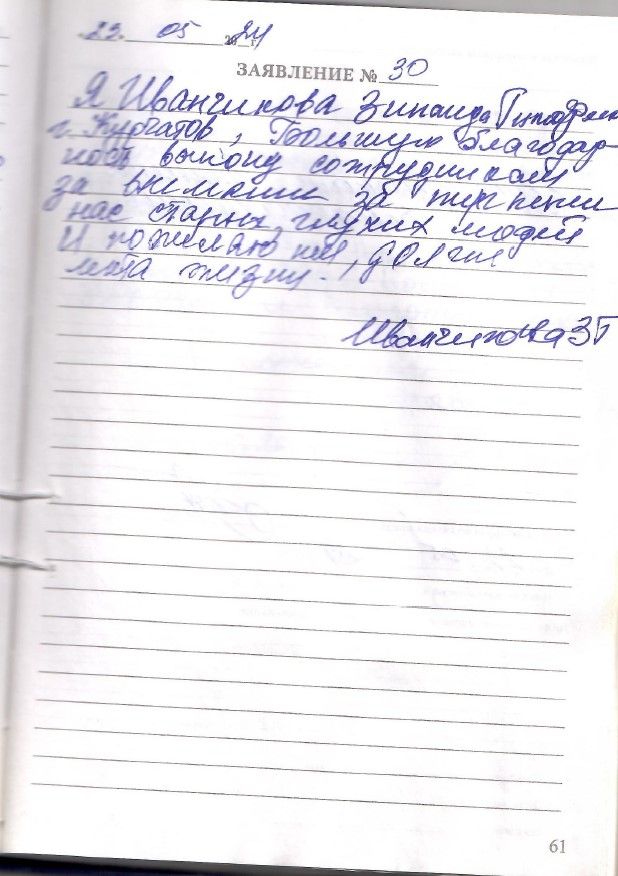 23. 05 2024 г.
ЗАЯВЛЕНИЕ № 30
Я Иванчикова Зинаида Тимофеев
г. Курчатов, Большую благодар-
ность выношу сотрудникам
за внимание за терпение
нас старых, глухих людей
И пожелаю им, долгие
лета жизни.
Иванчикова ЗТ
61